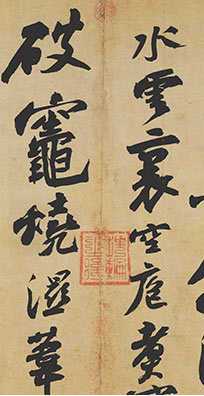 水雲裏空庖煮
破竈燒濕葦